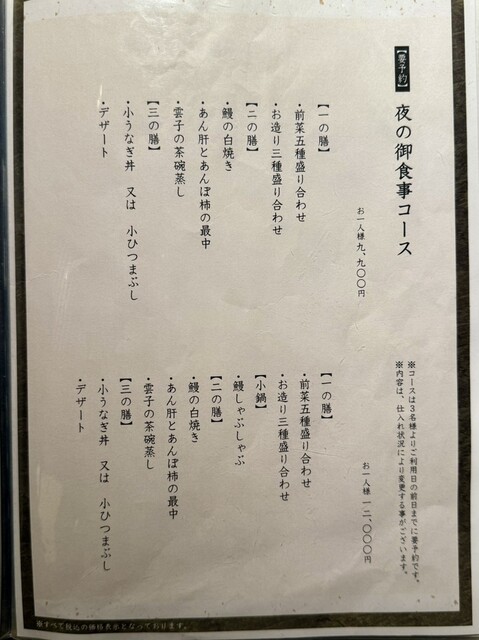 【要予約】 夜の御食事コース
※コースは3名様よりご利用日の前日までに要予約です。
※内容は、仕入れ状況により変更する事がございます。
お一人様 九、九〇〇円
【一の膳】
・前菜五種盛り合わせ
・お造り三種盛り合わせ
【二の膳】
・鰻の白焼き
・あん肝とあんぽ柿の最中
・雲子の茶碗蒸し
【三の膳】
・小うなぎ丼 又は 小ひつまぶし
・デザート
お一人様 一二、〇〇〇円
【一の膳】
・前菜五種盛り合わせ
・お造り三種盛り合わせ
【小鍋】
・鰻しゃぶしゃぶ
【二の膳】
・鰻の白焼き
・あん肝とあんぽ柿の最中
・雲子の茶碗蒸し
【三の膳】
・小うなぎ丼 又は 小ひつまぶし
・デザート
※すべて税込の価格表示となっております。